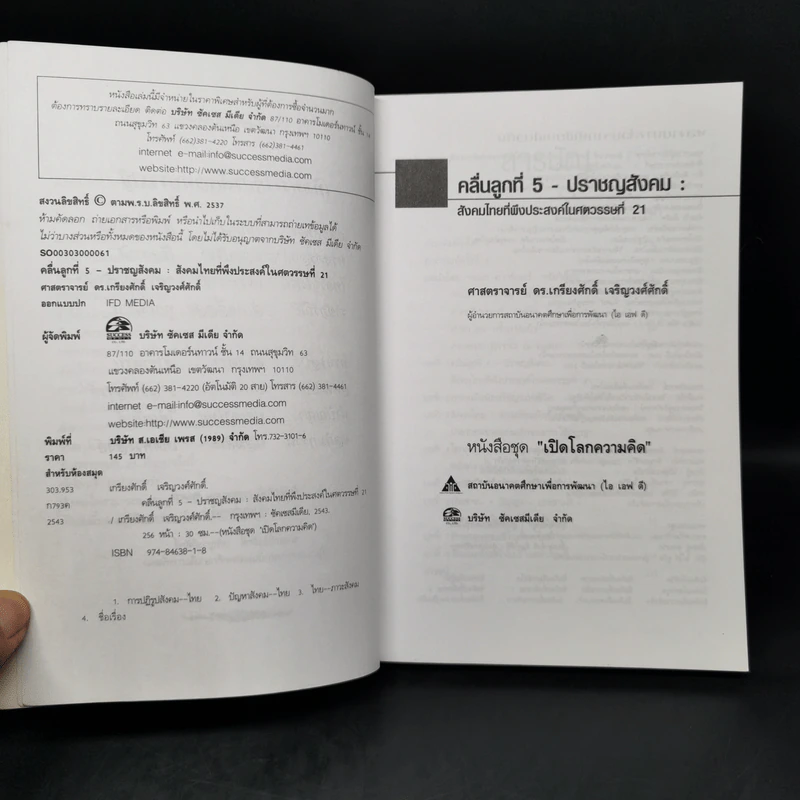 หนังสือเล่มนี้มีจำหน่ายในราคาพิเศษสำหรับผู้ที่ต้องการซื้อจำนวนมาก
ต้องการทราบรายละเอียด ติดต่อ บริษัท ซัคเซส มีเดีย จำกัด 87/110 อาคารโมเดอร์นทาวน์ ชั้น 14
ถนนสุขุมวิท 63 แขวงคลองตันเหนือ เขตวัฒนา กรุงเทพฯ 10110
โทรศัพท์ (662)381-4220 โทรสาร (662) 381-4461
internet e-mail:info@successmedia.com
website:http://www.successmedia.com
สงวนลิขสิทธิ์ © ตามพ.ร.บ.ลิขสิทธิ์ พ.ศ. 2537
ห้ามคัดลอก ถ่ายเอกสารหรือพิมพ์ หรือนำไปเก็บในระบบที่สามารถถ่ายเทข้อมูลได้
ไม่ว่าบางส่วนหรือทั้งหมดของหนังสือนี้ โดยไม่ได้รับอนุญาตจากบริษัท ซัคเซส มีเดีย จำกัด
SO00303000061
คลื่นลูกที่ 5 – ปราชญสังคม : สังคมไทยที่พึงประสงค์ในศตวรรษที่ 21
ศาสตราจารย์ ดร.เกรียงศักดิ์ เจริญวงศ์ศักดิ์
ออกแบบปก IFD MEDIA
ผู้จัดพิมพ์ SUCCESS MEDIA บริษัท ซัคเซส มีเดีย จำกัด
87/110 อาคารโมเดอร์นทาวน์ ชั้น 14 ถนนสุขุมวิท 63
แขวงคลองตันเหนือ เขตวัฒนา กรุงเทพฯ 10110
โทรศัพท์ (662) 381-4220 (อัตโนมัติ 20 สาย) โทรสาร (662) 381-4461
internet e-mail:info@successmedia.com
website:http://www.successmedia.com
พิมพ์ที่ บริษัท ส.เอเซีย เพรส (1989) จำกัด โทร.732-3101-6
ราคา 145 บาท
สำหรับห้องสมุด
303.953 เกรียงศักดิ์ เจริญวงศ์ศักดิ์.
ก793ค คลื่นลูกที่ 5 – ปราชญสังคม : สังคมไทยที่พึงประสงค์ในศตวรรษที่ 21
2543 / เกรียงศักดิ์ เจริญวงศ์ศักดิ์.-- กรุงเทพฯ : ซัคเซสมีเดีย, 2543.
256 หน้า : 30 ซม.--(หนังสือชุด "เปิดโลกความคิด")
ISBN 974-84638-1-8
1. การปฏิรูปสังคม--ไทย 2. ปัญหาสังคม--ไทย 3. ไทย--ภาวะสังคม
4. ชื่อเรื่อง
คลื่นลูกที่ 5 - ปราชญสังคม :
สังคมไทยที่พึงประสงค์ในศตวรรษที่ 21
ศาสตราจารย์ ดร.เกรียงศักดิ์ เจริญวงศ์ศักดิ์
ผู้อำนวยการสถาบันอนาคตศึกษาเพื่อการพัฒนา (ไอ เอฟ ดี)
หนังสือชุด "เปิดโลกความคิด"
สถาบันอนาคตศึกษาเพื่อการพัฒนา (ไอ เอฟ ดี)
บริษัท ซัคเซสมีเดีย จำกัด